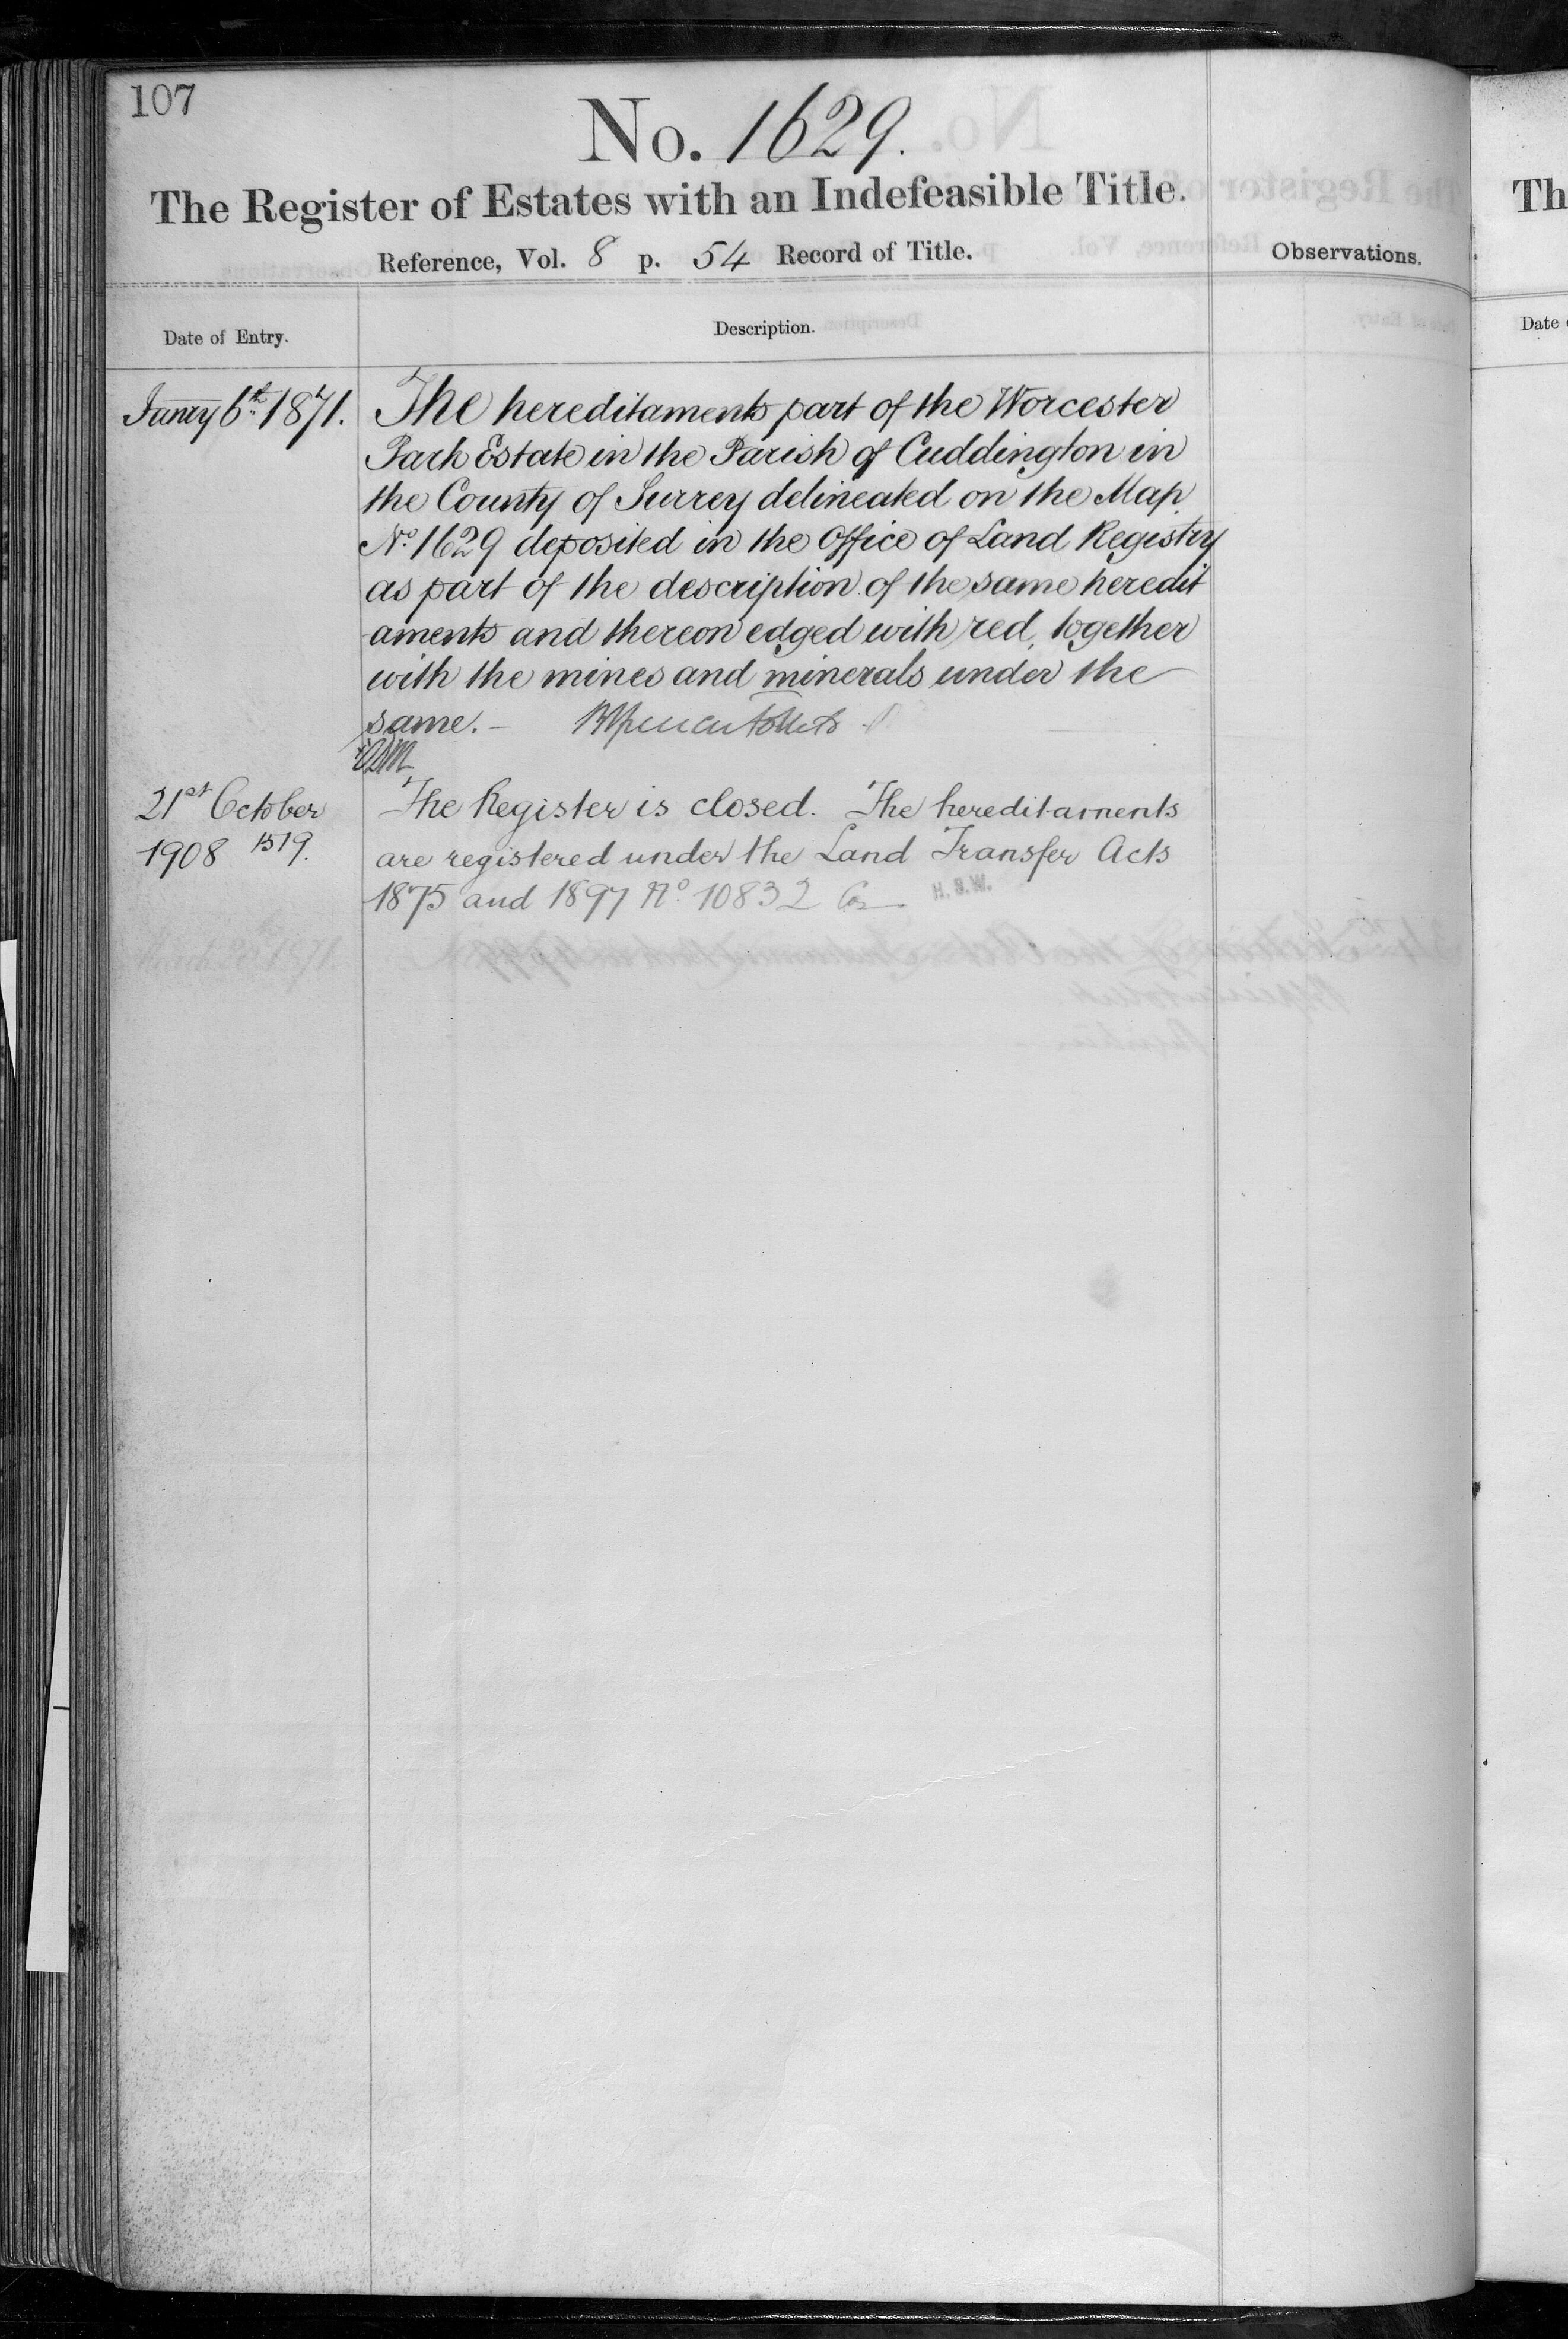 107
No. 1629.
The Register of Estates with an Indefeasible Title.
Reference, Vol. 8 p. 54 Record of Title.
Observations.
Date of Entry.
Description.
Janry 6th 1871.
The hereditaments part of the Worcester
Park Estate in the Parish of Cuddington in
the County of Surrey delineated on the Map
No. 1629 deposited in the Office of Land Registry
as part of the description of the same heredit
aments and thereon edged with red, together
with the mines and minerals under the
same. –
21st October
1908 1519.
The Register is closed. The hereditaments
are registered under the Land Transfer Acts
1875 and 1897 No 10832
H.S.W.
Th
Date